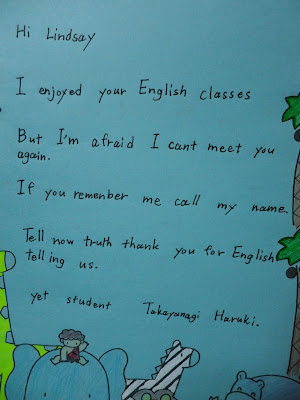 Hi Lindsay
I enjoyed your English classes
But I'm afraid I cant meet you
again.
If you remenber me call my name.
Tell now truth thank you for English
telling us.
yet student Takayanagi Haruki.